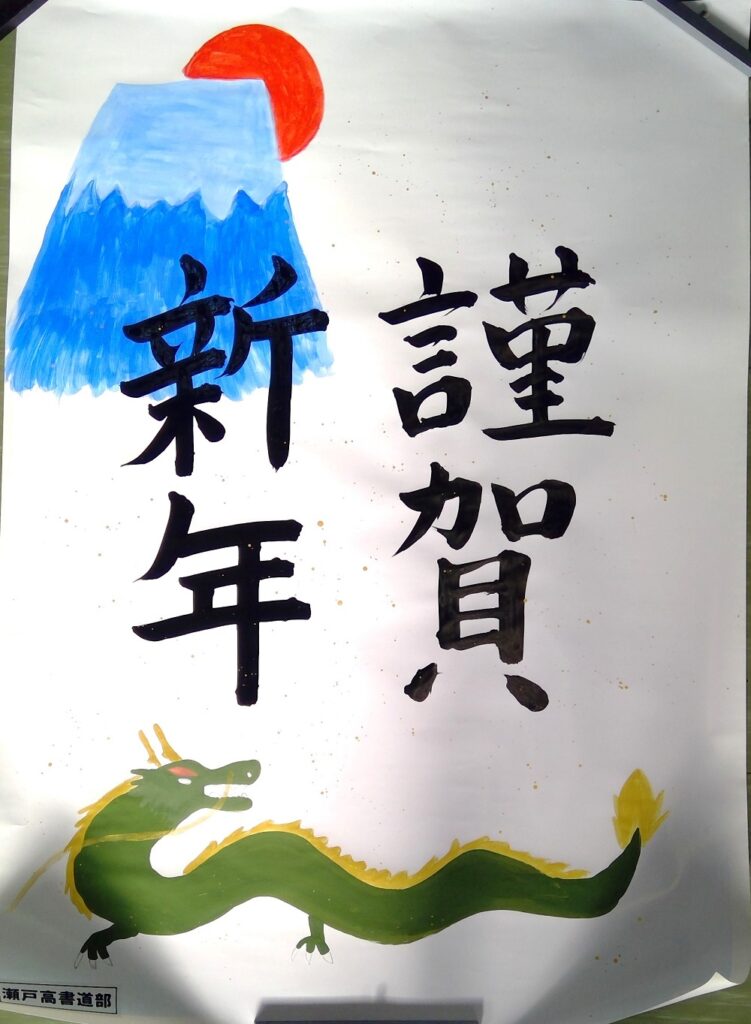 謹賀
新年
瀬戸高書道部